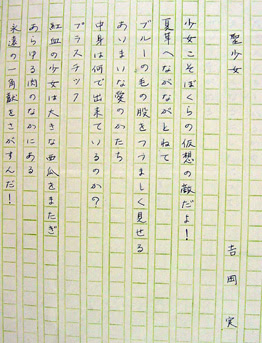 聖少女
吉岡実
少女こそぼくらの仮想の敵だよ！
夏草へながながとねて
ブルーの毛の股をつつましく見せる
あいまいな愛のかたち
中身は何で出来ているのか？
プラスチック
紅血の少女は大きな西瓜をまたぎ
あらゆる肉のなかにある
永遠の一角獣をさがすんだ！